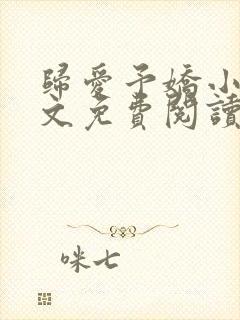 歸愛予嬌小
文免費閱讀
咪七